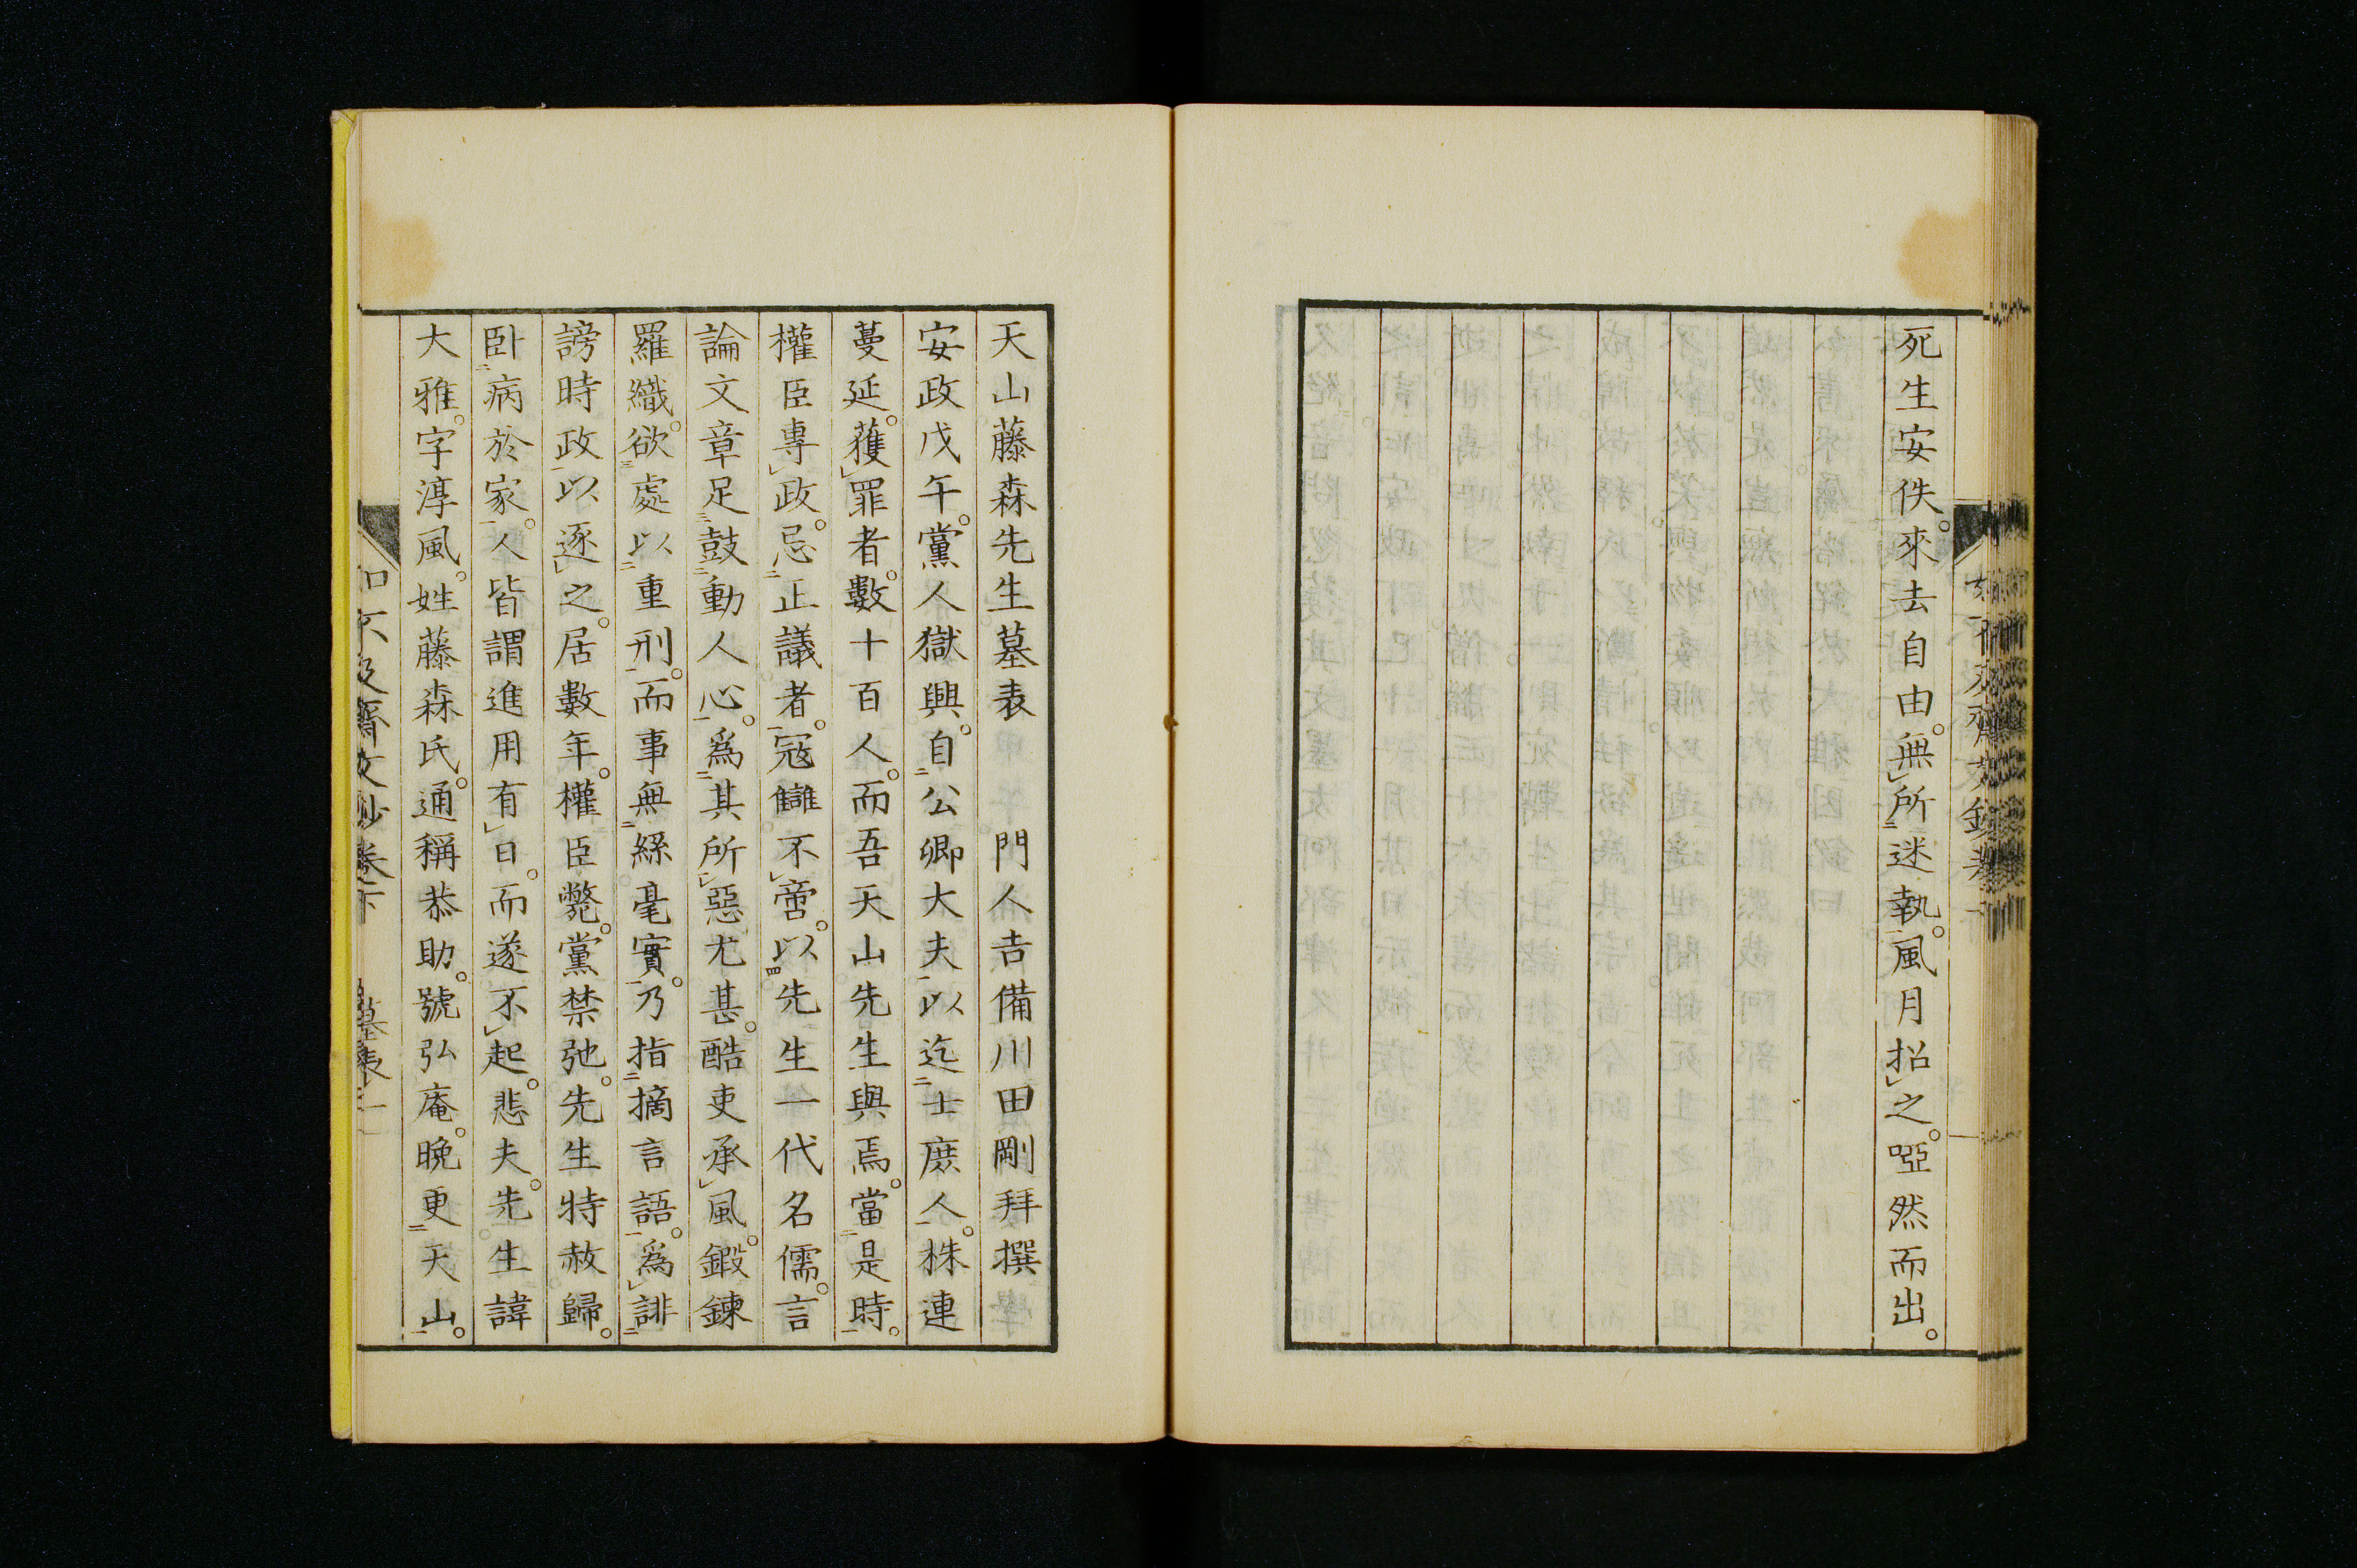 死生安佚。來去自由。無所迷執。風月招之。啞然而出。
天山藤森先生墓表
門人吉備川田剛拜撰
安政戊午。黨人獄興。自公卿大夫以迄士庶人。株連
蔓延。獲罪者。數十百人。而吾天山先生與焉。當是時。
權臣專政。忌正議者。寇讎不啻。以先生一代名儒。言
論文章足鼓動人心。爲其所惡尤甚。酷吏承風。鍛鍊
羅織。欲處以重刑。而事無絲毫實。乃指摘言語。爲誹
謗時政以逐之。居數年。權臣斃。黨禁弛。先生特赦歸。
臥病於家。人皆謂進用有日。而遂不起。悲夫。先生諱
大雅。字淳風。姓藤森氏。通稱恭助。號弘庵。晩更天山。
如不及齋文鈔卷下 墓表 一